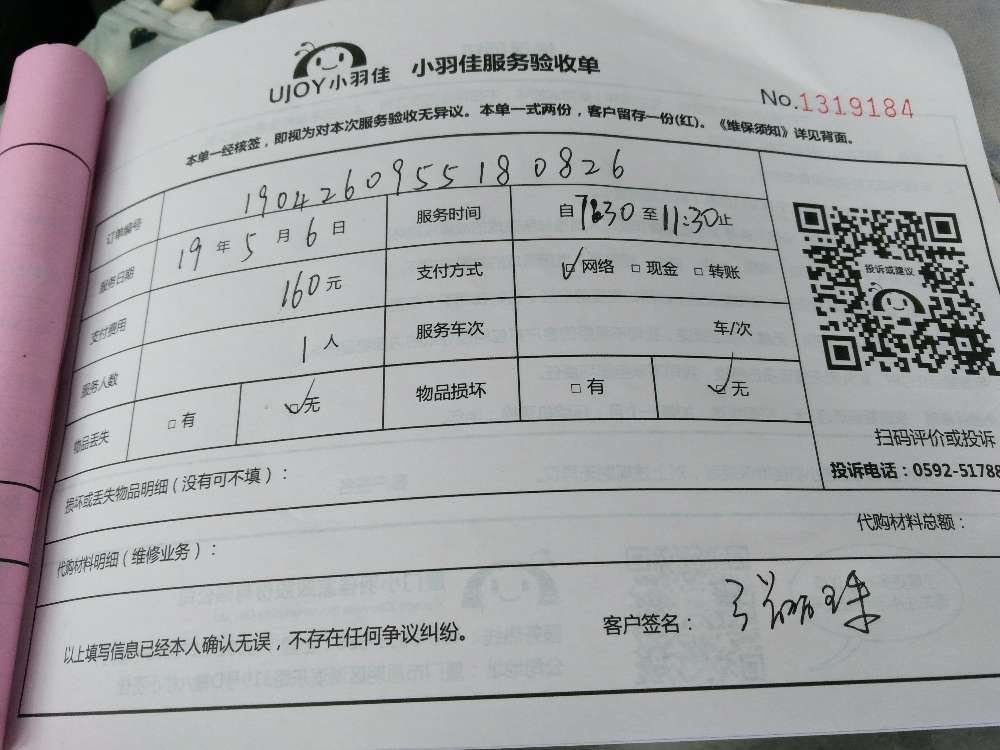 UJOY小羽佳 小羽佳服务验收单
No.1319184
本单一经核签，即视为对本次服务验收无异议。本单一式两份，客户留存一份(红)。《维保须知》详见背面。
订单编号 190426095518 0826
服务日期 19 年 5 月 6 日 服务时间 自 7:30 至 11:30 止
支付费用 160 元 支付方式 ☑网络 □现金 □转账
服务人数 1 人 服务车次 车/次
物品丢失 □有 ☑无 物品损坏 □有 ☑无
投诉或建议
扫码评价或投诉
投诉电话：0592-51788
损坏或丢失物品明细（没有可不填）：
代购材料明细（维修业务）： 代购材料总额：
以上填写信息已经本人确认无误，不存在任何争议纠纷。 客户签名：